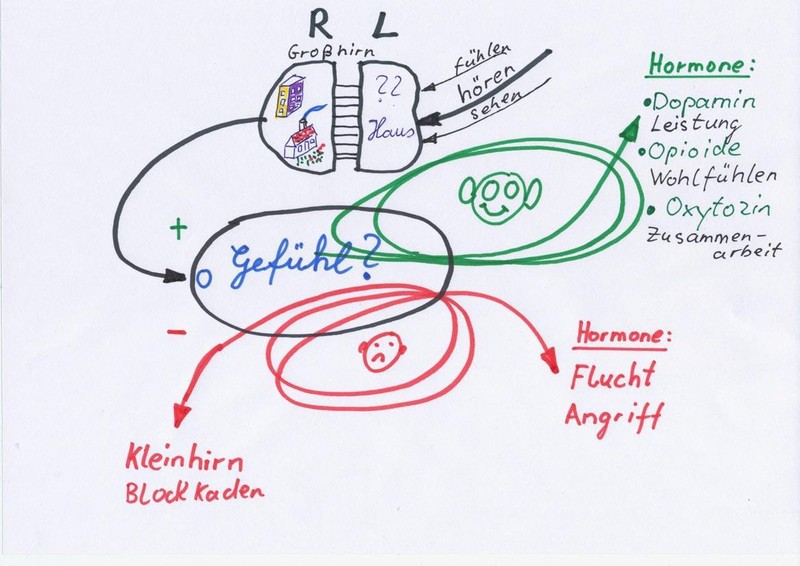 R L
Großhirn
fühlen
hören
sehen
??
Haus
Hormone:
•Dopamin
Leistung
•Opioide
Wohlfühlen
• Oxytozin
Zusammen-
arbeit
+
Gefühl?
-
Hormone:
Flucht
Angriff
Kleinhirn
Blockkaden